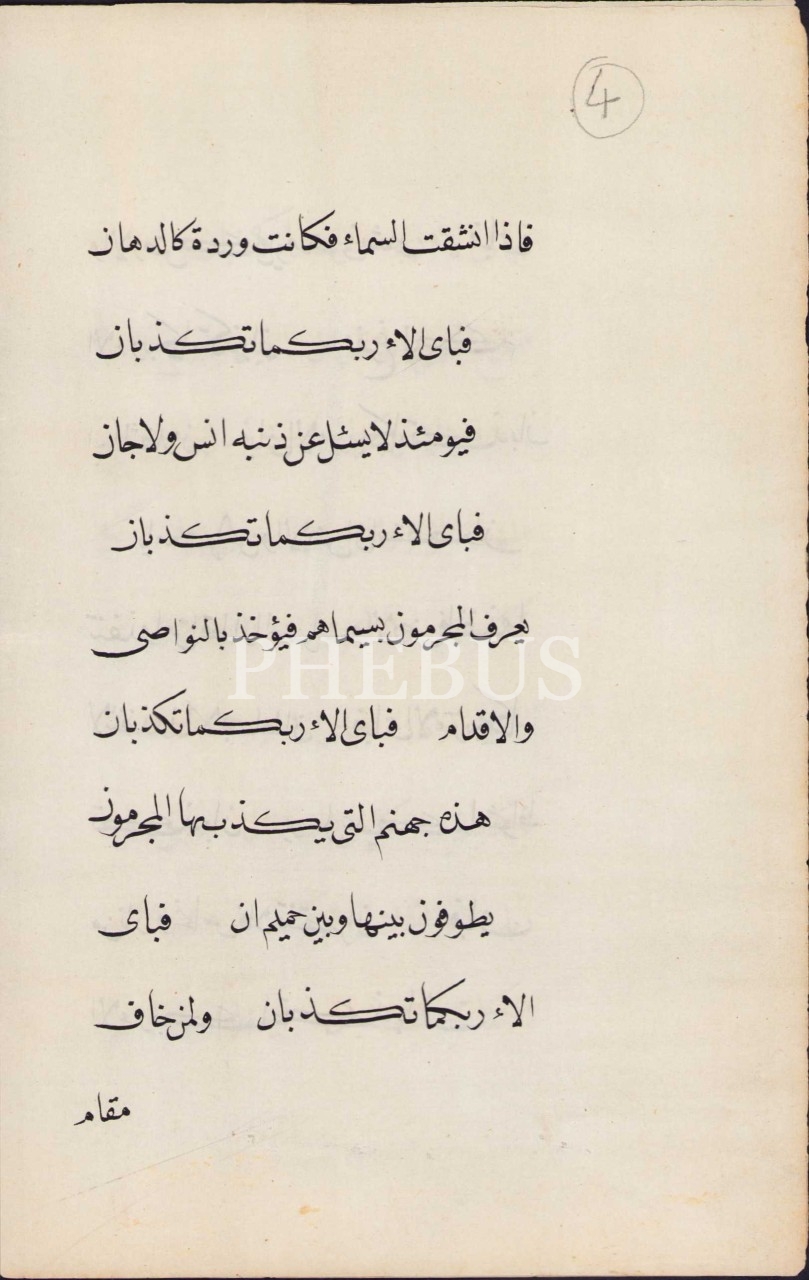 4
فاذا انشقت السماء فكانت وردة كالدهان
فباى الاء ربكما تكذبان
فيومئذ لا يسئل عن ذنبه انس ولا جان
فباى الاء ربكما تكذبان
يعرف المجرمون بسيماهم فيؤخذ بالنواصى
PHEBUS
والاقدام فباى الاء ربكما تكذبان
هذه جهنم التى يكذب بها المجرمون
يطوفون بينها وبين حميم ان فباى
الاء ربكما تكذبان ولمن خاف
مقام